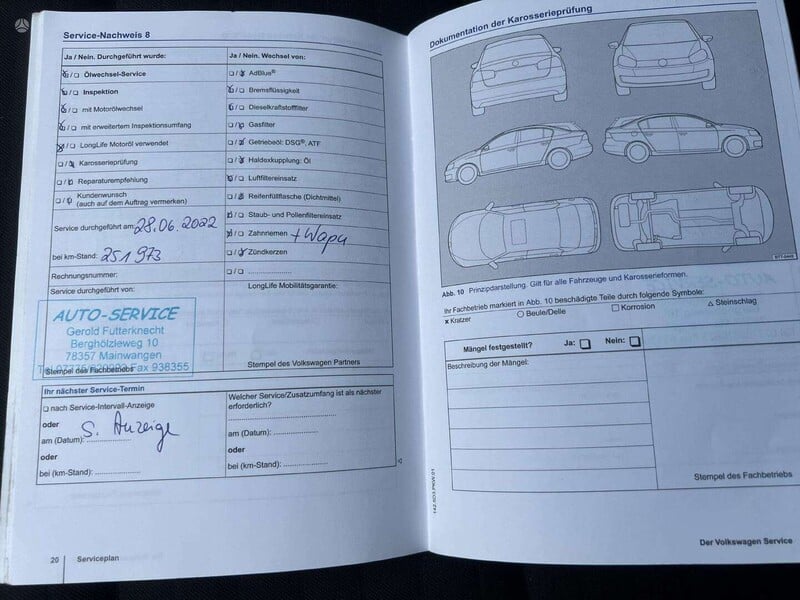 Service-Nachweis 8
Ja / Nein. Durchgeführt wurde:
Ölwechsel-Service
Inspektion
mit Motorölwechsel
mit erweitertem Inspektionsumfang
LongLife Motoröl verwendet
Karosserieprüfung
Reparaturempfehlung
Kundenwunsch
(auch auf dem Auftrag vermerken)
Ja / Nein. Wechsel von:
AdBlue®
Bremsflüssigkeit
Dieselkraftstofffilter
Gasfilter
Getriebeöl: DSG®, ATF
Haldexkupplung: Öl
Luftfiltereinsatz
Reifenfüllflasche (Dichtmittel)
Staub- und Pollenfiltereinsatz
Zahnriemen + Wapu
Zündkerzen
Service durchgeführt am: 28.06.2022
bei km-Stand: 251 973
Rechnungsnummer:
Service durchgeführt von:
AUTO-SERVICE
Gerold Futterknecht
Berghölzleweg 10
78357 Mainwangen
Fax 938355
Stempel des Fachbetriebs
LongLife Mobilitätsgarantie:
Stempel des Volkswagen Partners
Ihr nächster Service-Termin
nach Service-Intervall-Anzeige
oder
S. Anzeige
am (Datum):
oder
bei (km-Stand):
Welcher Service/Zusatzumfang ist als nächster
erforderlich?
am (Datum):
oder
bei (km-Stand):
20 Serviceplan
Dokumentation der Karosserieprüfung
Abb. 10 Prinzipdarstellung. Gilt für alle Fahrzeuge und Karosserieformen.
Ihr Fachbetrieb markiert in Abb. 10 beschädigte Teile durch folgende Symbole:
x Kratzer ○ Beule/Delle □ Korrosion △ Steinschlag
Mängel festgestellt? Ja: □ Nein: □
Beschreibung der Mängel:
Stempel des Fachbetriebs
Der Volkswagen Service